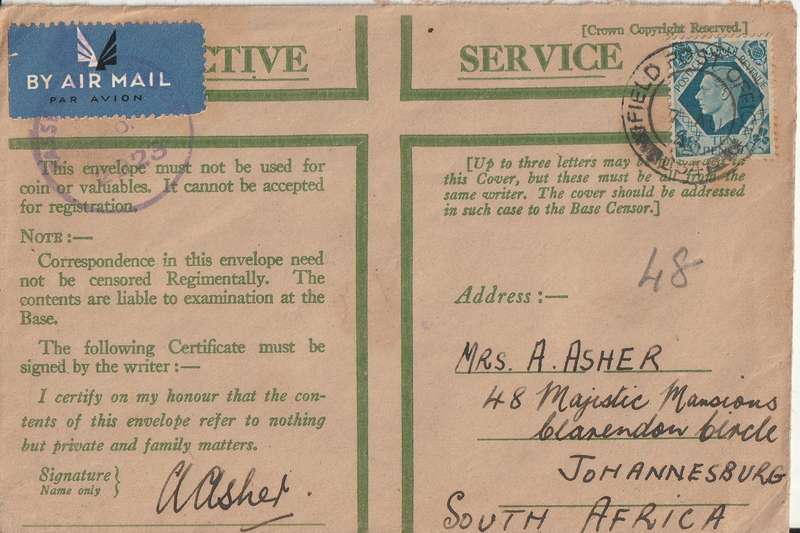 BY AIR MAIL
PAR AVION
CTIVE
SERVICE
[Crown Copyright Reserved.]
FIELD
POSTAGE REVENUE
23
This envelope must not be used for
coin or valuables. It cannot be accepted
for registration.
NOTE:—
Correspondence in this envelope need
not be censored Regimentally. The
contents are liable to examination at the
Base.
The following Certificate must be
signed by the writer:—
I certify on my honour that the con-
tents of this envelope refer to nothing
but private and family matters.
Signature
Name only
AAsher.
[Up to three letters may be in
this Cover, but these must be all from the
same writer. The cover should be addressed
in such case to the Base Censor.]
48
Address:—
MRS. A. ASHER
48 Majistic Mansions
Clarendon Circle
JOHANNESBURG
SOUTH AFRICA